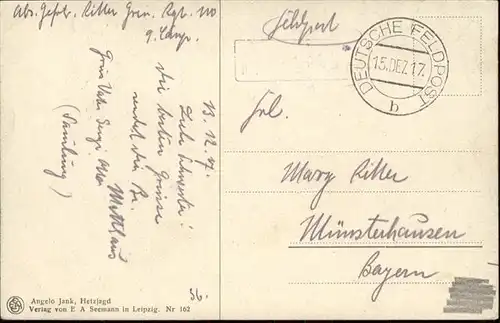 Abs. Gefr. Ritter Gren. Rgt. 110
9. Comp.
Feldpost
DEUTSCHE FELDPOST
15.DEZ.17.
b
13.12.17.
Liebe Schwester!
die besten Grüsse
sendet dir Br.
Matthäus
Frl.
Mary Ritter
Münsterhausen
Bayern
36.
Angelo Jank, Hetzjagd
Verlag von E A Seemann in Leipzig. Nr 162